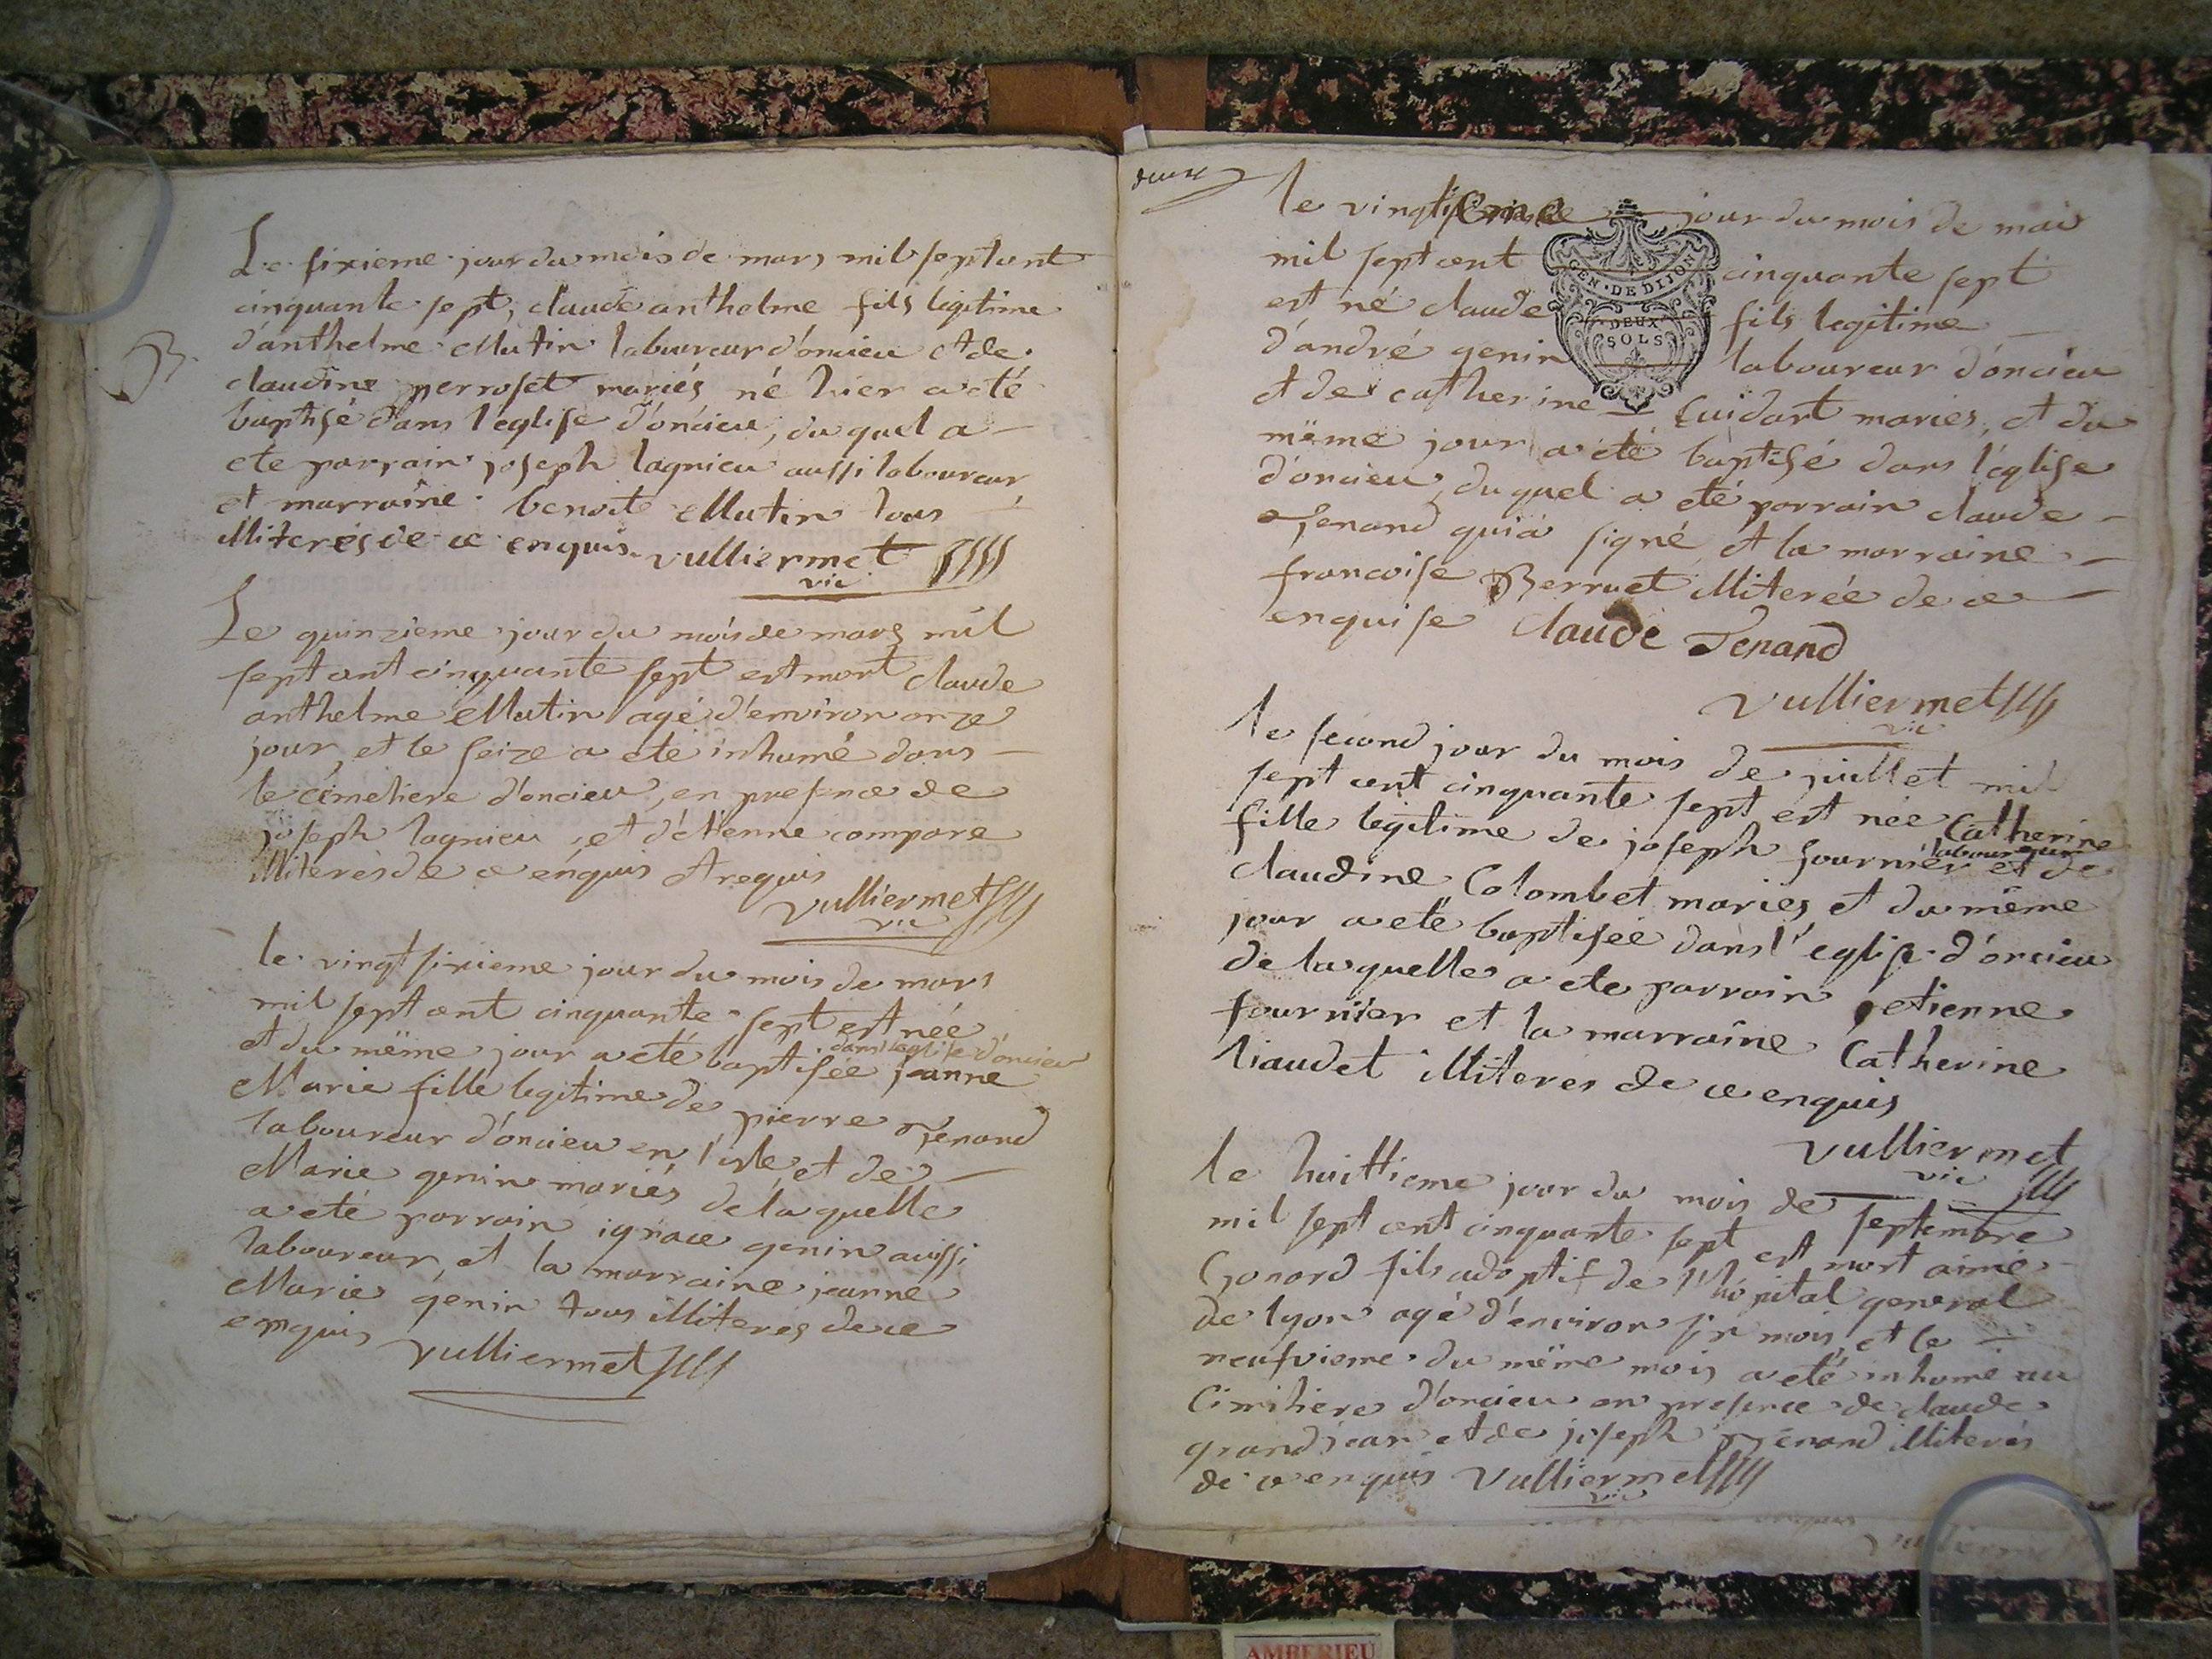 Le sixieme jour du mois de mars mil sept cent
cinquante sept, claude anthelme fils legitime
d'anthelme Mutin laboureur d'oncieu et de
claudine perroset mariés né hier a eté
baptisé dans l'eglise d'oncieu, du quel a
eté parrain joseph lagnieu aussi laboureur
et marraine benoite Mutin tous
illiterés de ce enquis. vulliermet
vic
B.
Le quinzieme jour du mois de mars mil
sept cent cinquante sept est mort claude
anthelme Mutin agé d'environ onze
jour, et le seize a eté inhumé dans
le cimetiere d'oncieu, en presence de
joseph lagnieu, et d'etienne compare
illiterés de ce enquis et requis
vulliermet
vic
le vingt sixieme jour du mois de mars
mil sept cent cinquante sept est née
dans l'eglise d'oncieu
et du même jour a eté baptisée jeanne
Marie fille legitime de pierre Tenand
laboureur d'oncieu en l'isle et de
Marie genin mariés de laquelle
a eté parrain ignace genin aussi
laboureur, et la marraine jeanne
Marie genin tous illiterés de ce
enquis vulliermet
deux
le vingt jour du mois de mai
mil sept cent cinquante sept
est né claude fils legitime
d'andré genin laboureur d'oncieu
et de catherine Cuidart mariés, et du
même jour a eté baptisé dans l'eglise
d'oncieu, du quel a eté parrain claude
Tenand qui a signé et la marraine
francoise Berruet illiterée de ce
enquise claude Tenand
vulliermet
vic
GEN · DE DIJON
DEUX
SOLS
le second jour du mois de juillet mil
sept cent cinquante sept est née Catherine
fille legitime de joseph fournier laboureur et de
claudine Colombet mariés, et du même
jour a eté baptisée dans l'eglise d'oncieu
de laquelle a eté parrain etienne
fournier et la marraine Catherine
liaudet illiteres de ce enquis
vulliermet
vic
le huittieme jour du mois de septembre
mil sept cent cinquante sept est mort aimé
Gonard fils adoptif de l'hôpital general
de lyon agé d'environ six mois, et le
neufvieme du même mois a eté inhumé au
Cimitiere d'oncieu en presence de claude
grandjean et de joseph Tenand illiterés
de ce enquis vulliermet
vic
AMBERIEU